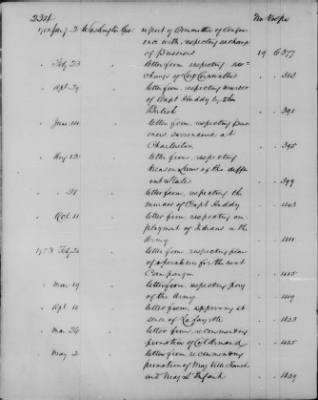 2204
Geo
1782 Jany 2 Washington Geo report of Committee of Confer
ence with, respecting exchange
of Prisoners 19 6 377
" Feb 23 letter from, respecting ex-
change of Ld Cornwallis
" Apl 29 letter from respecting murder
of Capt Huddy by the
British " " 391
" June 14 letter from, respecting pris
oners surrendered at
Charleston " " 395
" Aug 13 letter from, respecting
Treason Laws of the differ
ent States " " 399
" letter from, respecting the
murder of Capt Huddy " " 403
" Oct 11 letter from, respecting em
ployment of Indians in the
Army " " 411
1783 Feb letter from, respecting plan
of operations for the next
Campaign " " 415
" Mar 19 letter from, respecting pay
of the Army " " 419
" Apl letter from, approving ab
sence of La fayette " " 423
" Mar 26 letter from, recommending
promotion of Col Armand " " 425
" May 2 letter from, recommending
promotion of Maj Villefranche
and Maj L'Enfant " " 429